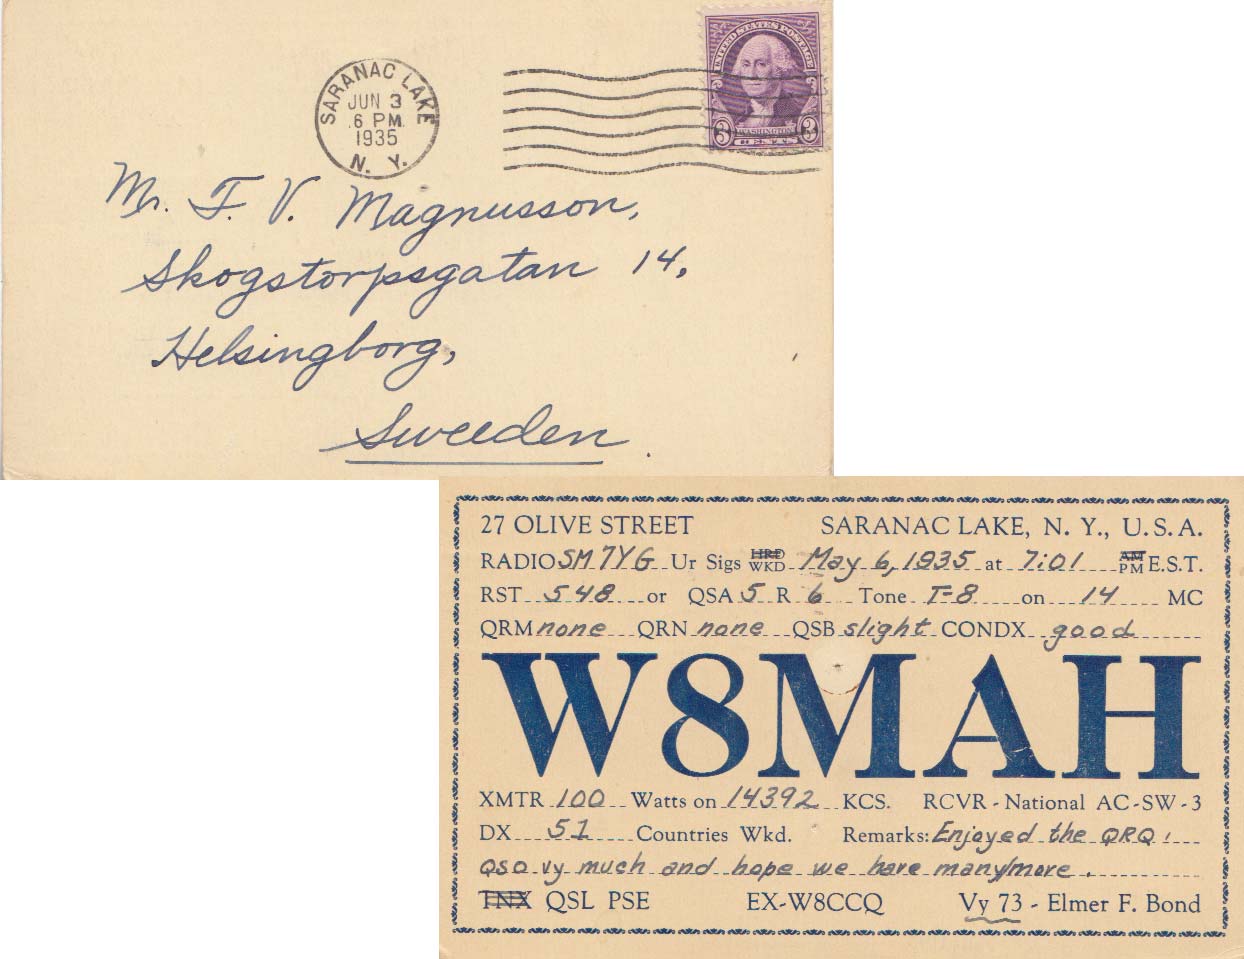 SARANAC LAKE
JUN 3
6 PM
1935
N. Y.
UNITED STATES POSTAGE
3 WASHINGTON 3
CENTS
Mr. F. V. Magnusson,
Skogstorpsgatan 14,
Helsingborg,
Sweeden.
27 OLIVE STREET SARANAC LAKE, N. Y., U. S. A.
RADIO SM7YG Ur Sigs HRD WKD May 6, 1935 at 7:01 AM PM E.S.T.
RST 548 or QSA 5 R 6 Tone T-8 on 14 MC
QRM none QRN none QSB slight CONDX good
W8MAH
XMTR 100 Watts on 14392 KCS. RCVR - National AC-SW-3
DX 51 Countries Wkd. Remarks: Enjoyed the QRQ
QSO vy much and hope we have many more.
TNX QSL PSE EX-W8CCQ Vy 73 - Elmer F. Bond